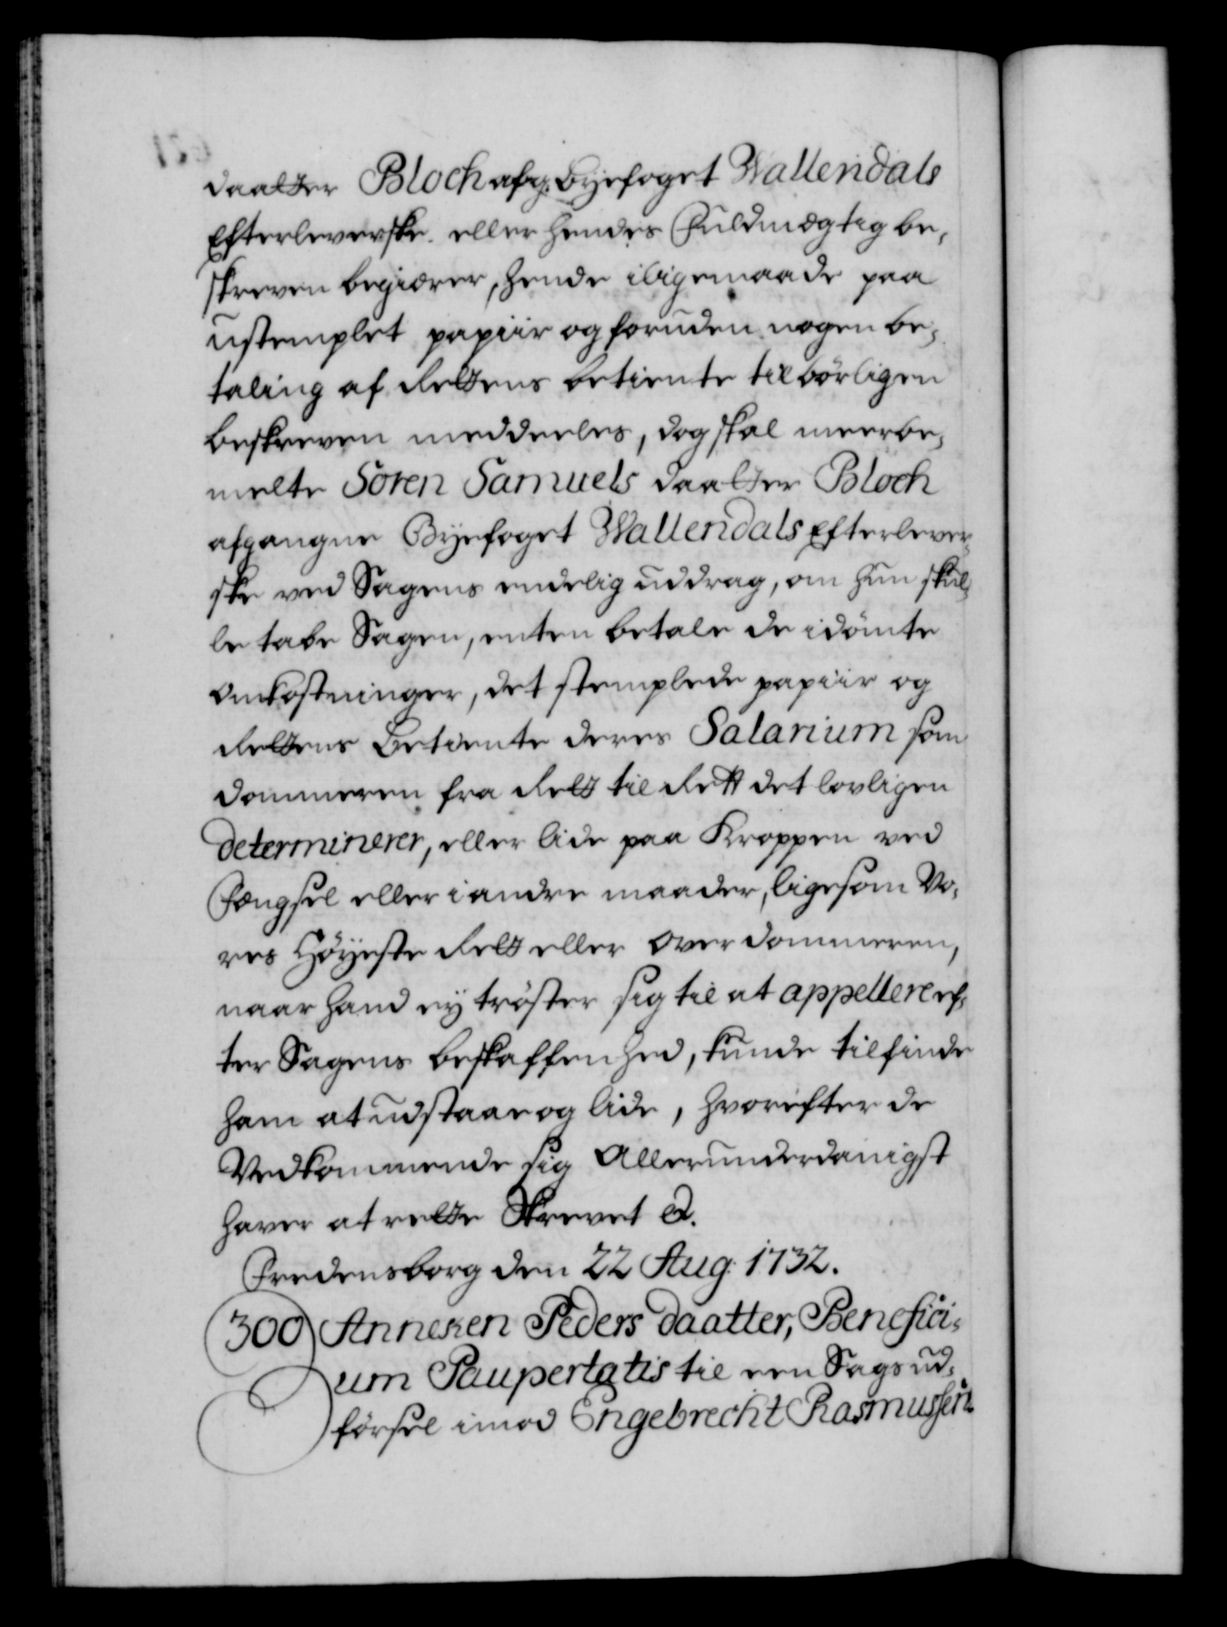 daatter Bloch afg. Byefoget Wallendals
Efterleverske eller hendes Fuldmægtig be,
skreven begiærer, hende iligemaade paa
ustemplet papiir og foruden nogen be,
taling af Rettens betiente tilbörligen
beskreven meddeeles, dog skal meerbe,
melte Sören Samuels daatter Bloch
afgangne Byefoget Wallendals Efterlever,
ske ved Sagens endelig uddrag, om hun skul,
le tabe Sagen, enten betale de idömte
Omkostninger, det stemplede papiir og
Rettens Betiente deres Salarium som
dommeren fra Rett til Rett det lovligen
determinerer, eller lide paa Kroppen ved
Fængsel eller i andre maader, ligesom Vo,
res Höyeste Rett eller Over dommeren,
naar hand ey tröster sig til at appellere ef,
ter Sagens beskaffenhed, kunde tilfinde
ham at udstaae og lide, hvorefter de
Vedkommende sig Allerunderdanigst
haver at rette Skrevet &.
Fredensborg den 22 Aug: 1732.
300 Anneken Peders daatter, Benefici,
um Paupertatis til een Sags ud,
försel imod Engebrecht Rasmussen